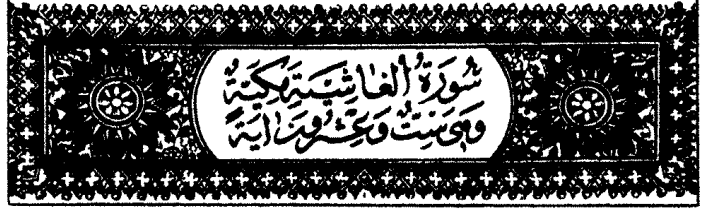 سُورَةُ الغَاشِيَةِ مَكِّيَّةٌ
وَهِيَ سِتٌّ وَعِشْرُونَ آيَةً